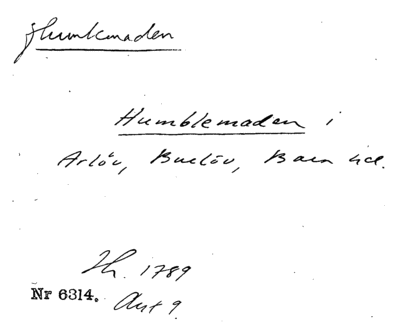 Humlemaden
Humblemaden i
Arlöv, Burlöv, Bara hd.
Ih. 1789
Nr 6314. Akt 9.